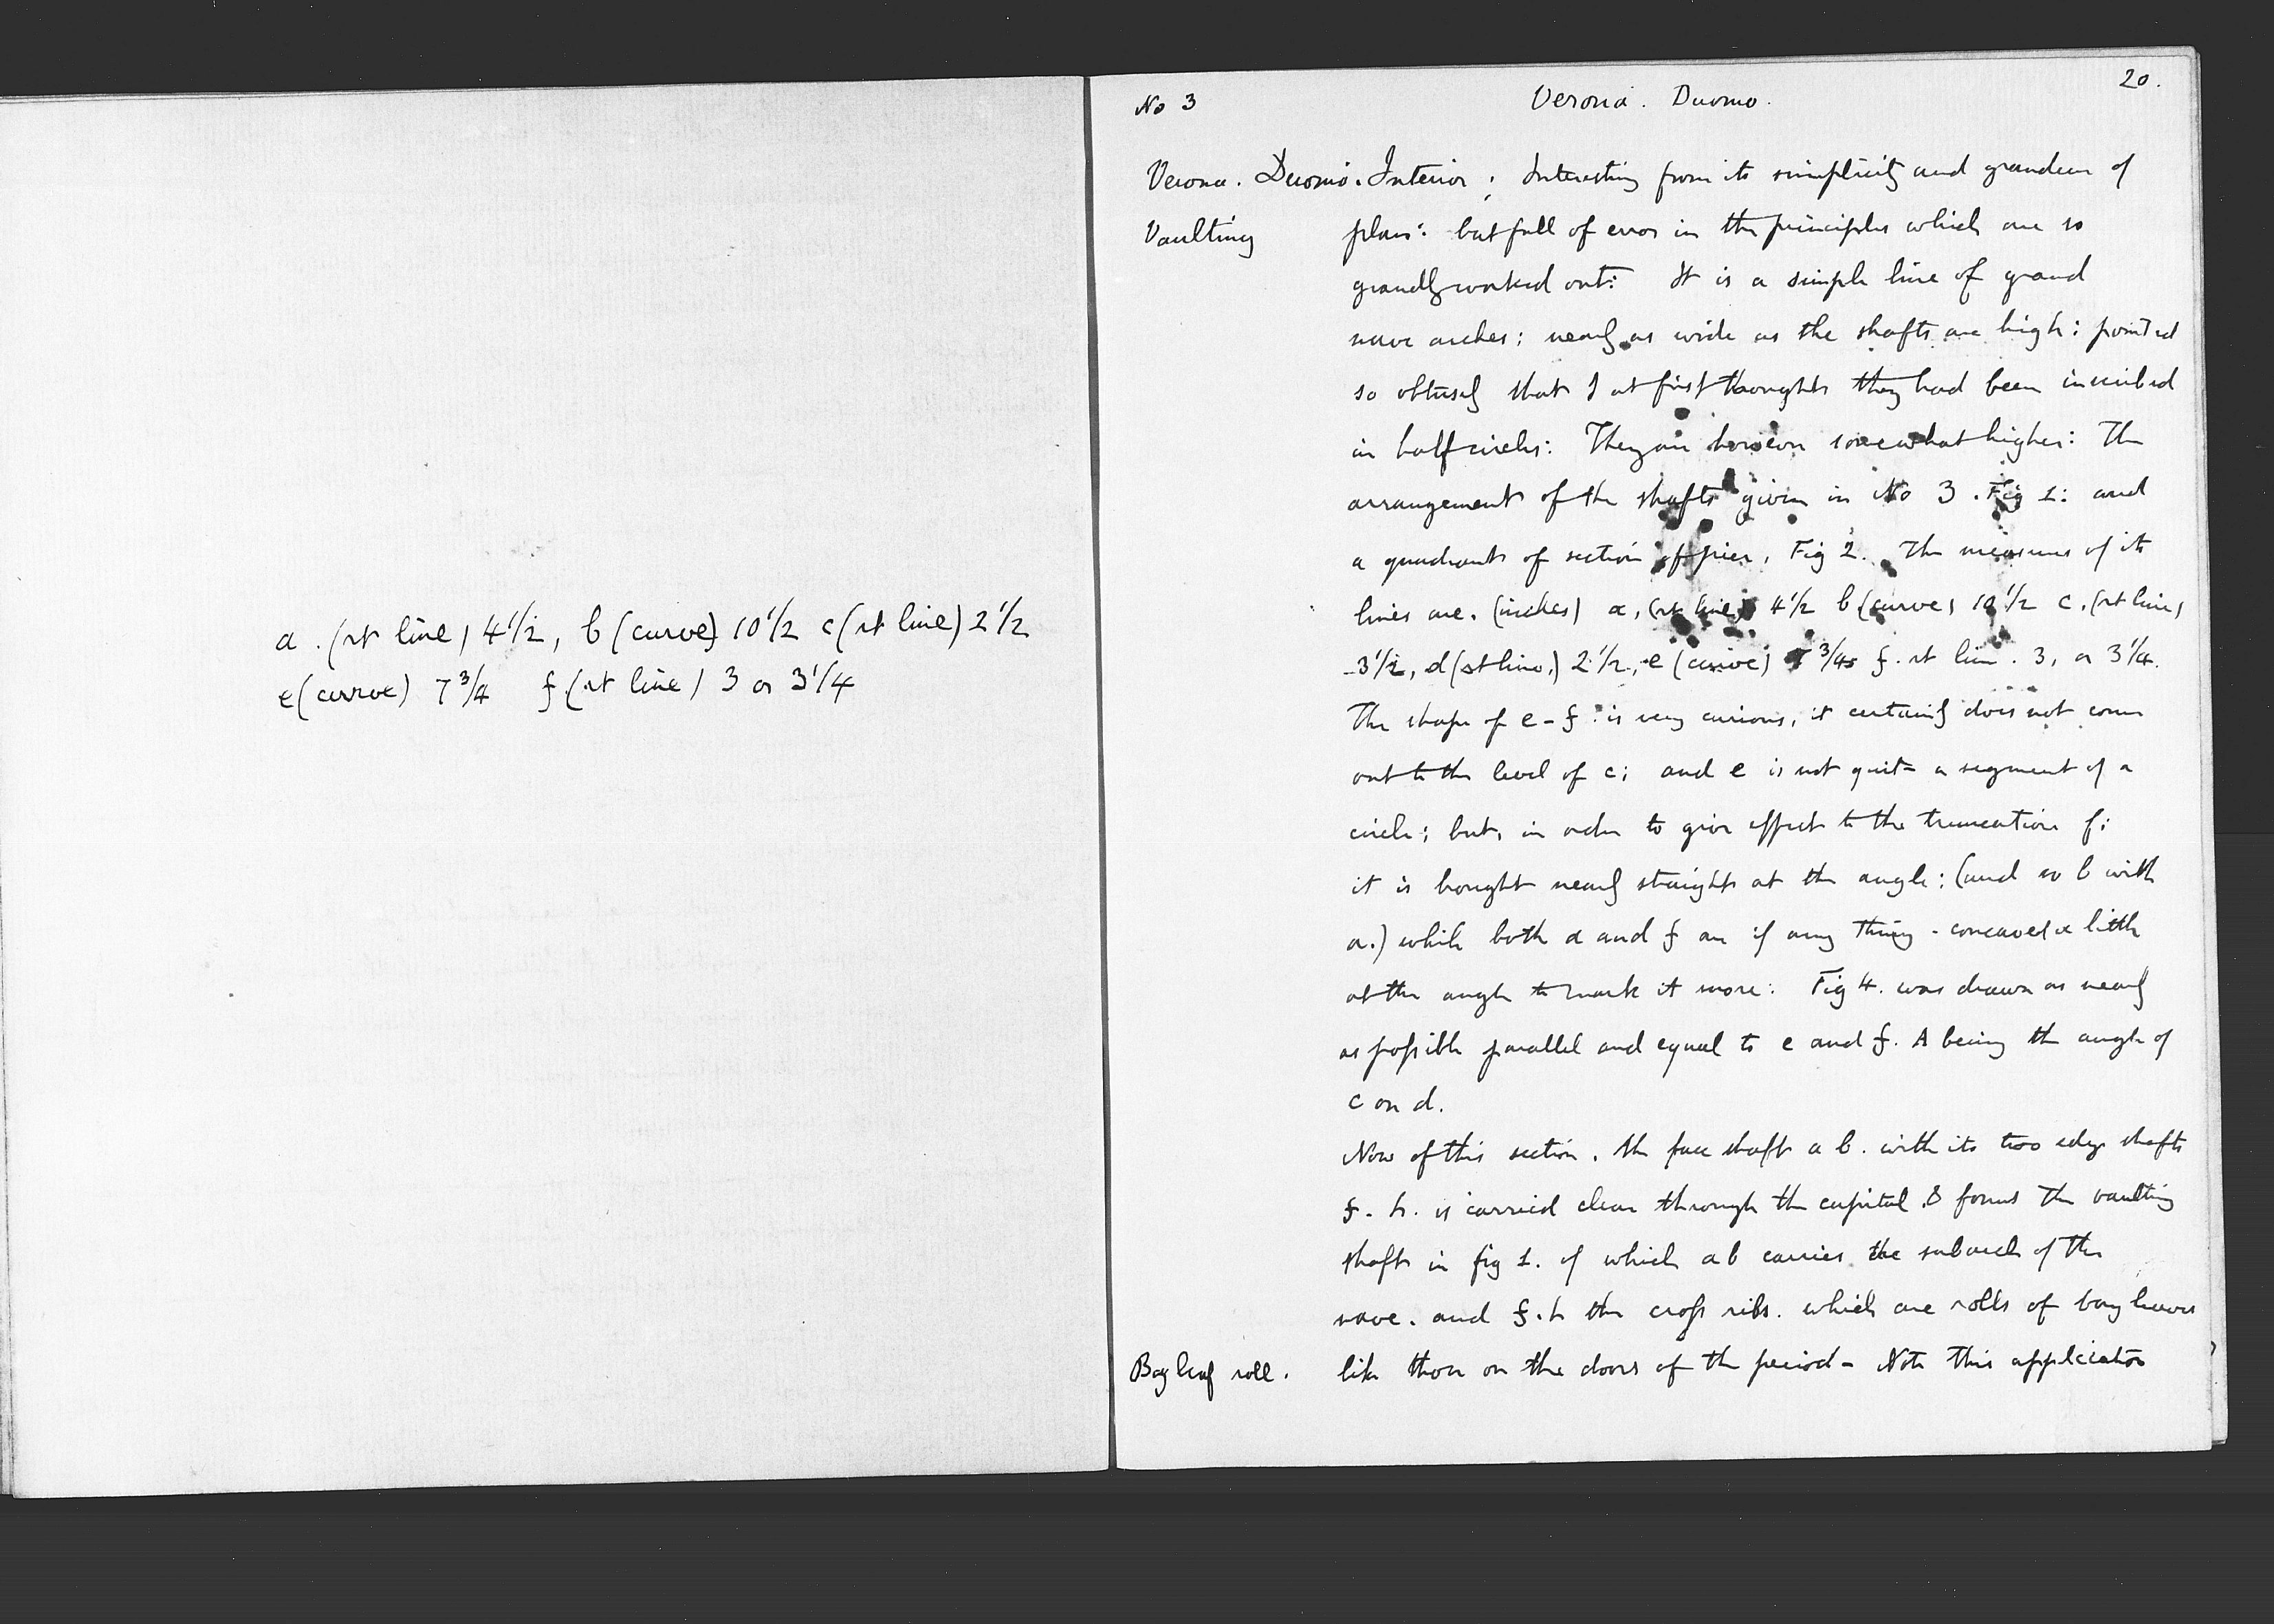 a . (rt line) 4 1/2, b (curve) 10 1/2 c (rt line) 2 1/2
e (curve) 7 3/4 f (rt line) 3 or 3 1/4
No 3 Verona. Duomo. 20.
Verona. Duomo. Interior; Interesting from its simplicity and grandeur of
Vaulting plan: but full of error in the principles which are so
grandly worked out: It is a simple line of grand
nave arches; nearly as wide as the shafts are high: pointed
so obtusely that I at first thought they had been inscribed
in half circles: They are however somewhat higher: The
arrangement of the shafts given in No 3. Fig 1: and
a quadrant of section of pier, Fig 2. The measures of its
lines are. (inches) a, (rt line) 4 1/2 b (curve) 10 1/2 c. (rt line)
3 1/2, d (rt line.) 2 1/2, e (curve) 7 3/4 f. rt line. 3, or 3 1/4.
The shape of e - f is very curious, it certainly does not come
out to the level of c; and e is not quite a segment of a
circle; but, in order to give effect to the truncation f;
it is bought nearly straight at the angle; (and so b with
a.) while both a and f are if any thing - concaved a little
at the angle to mark it more: Fig 4. was drawn as nearly
as possible parallel and equal to e and f. A being the angle of
c on d.
Now of this section, the face shaft a b. with its two edge shafts
f. h. is carried clear through the capital & forms the vaulting
shaft in fig 1. of which a b carries the subarch of the
nave. and f. h the cross ribs. which are rolls of bay leaves
Bay leaf roll. like those on the doors of the period - Note this application